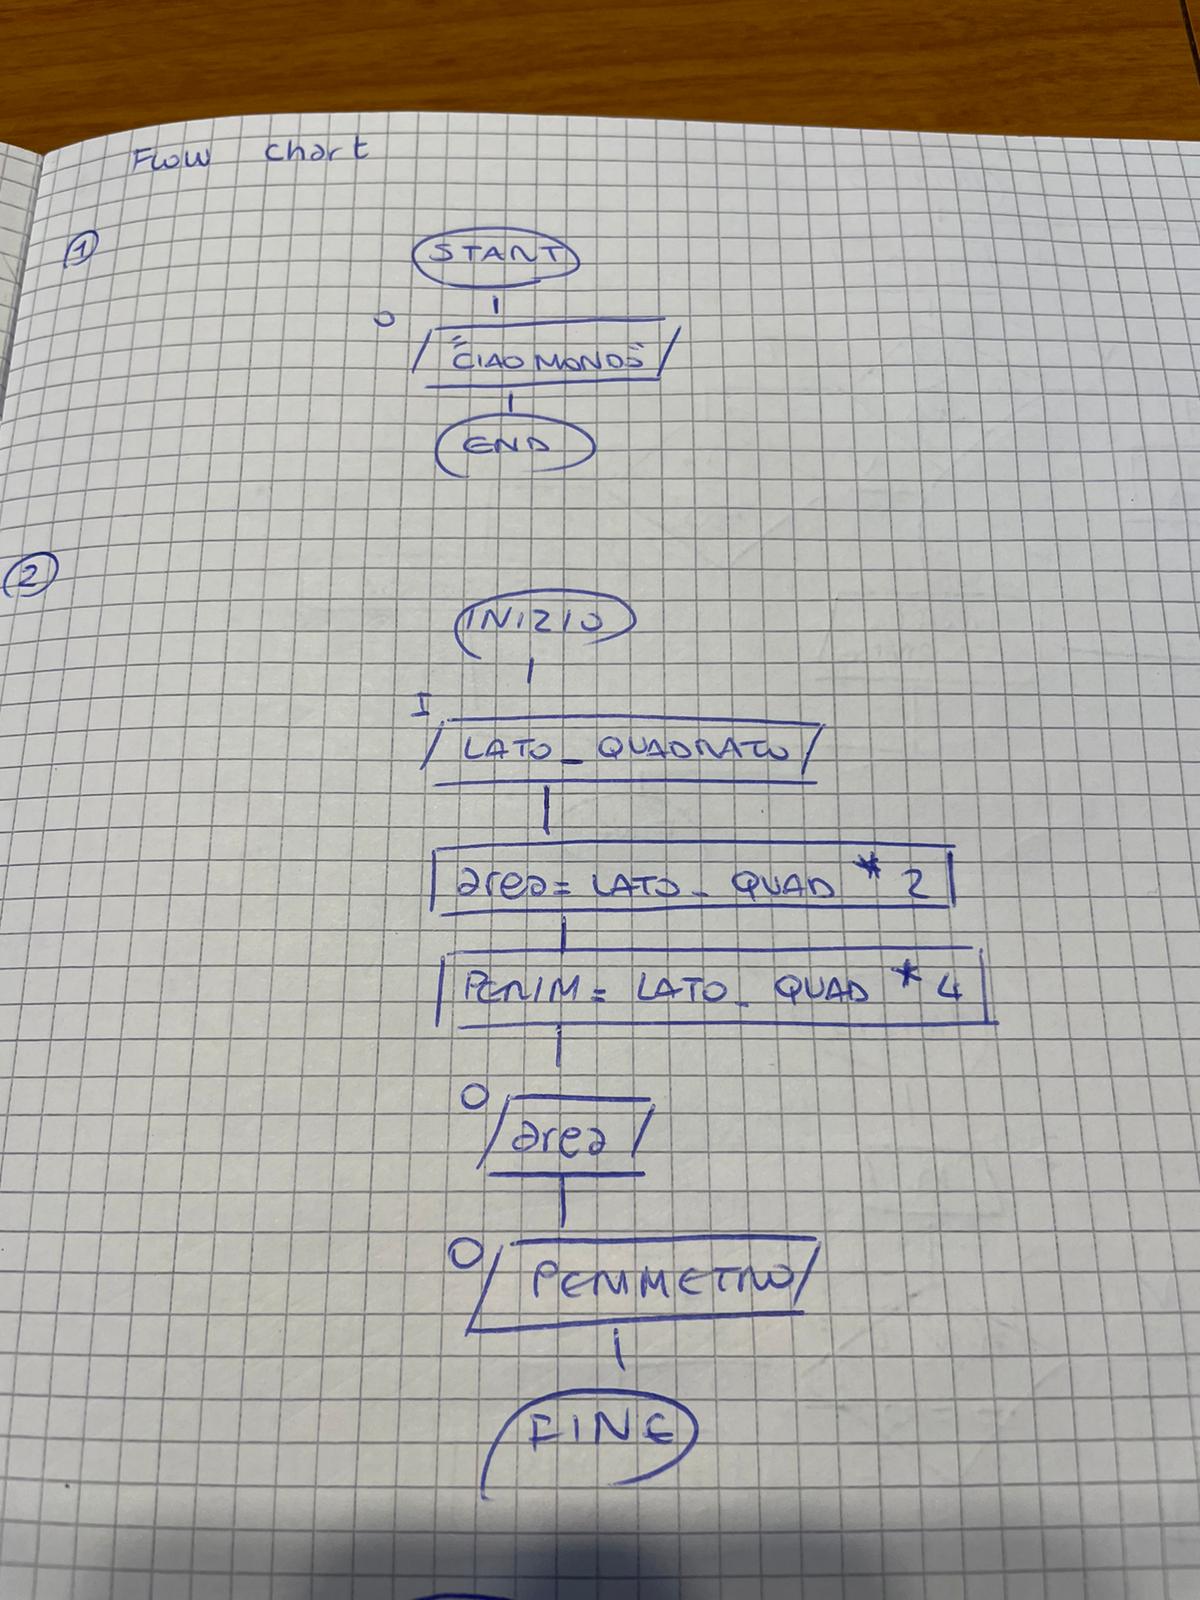 Flow chart
1
START
O
"CIAO MONDO"
END
2
INIZIO
I
LATO_QUADRATO
area = LATO_QUAD * 2
PERIM = LATO_QUAD * 4
O
area
O
PERIMETRO
FINE